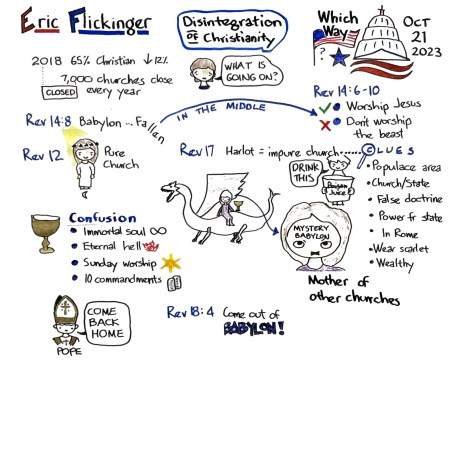 Eric Flickinger
Disintegration
OF Christianity
Which
Way
?
OCT
21
2023
2018 65% Christian ↓12%
7,000 churches close
every year
CLOSED
WHAT IS
GOING ON?
Rev 14:6-10
✓ • Worship Jesus
✗ • Don't worship
the beast
Rev 14:8 Babylon ... Fallen
IN THE MIDDLE
Rev 12
Pure
Church
Rev 17 Harlot = impure church ...... CLUES
• Populace area
• Church/State
• False doctrine
• Power fr state
• In Rome
• Wear scarlet
• Wealthy
DRINK
THIS
Poison
Juice
MYSTERY
BABYLON
Mother of
other churches
Confusion
• Immortal soul ∞
• Eternal hell
• Sunday worship
• 10 commandments
COME
BACK
HOME
POPE
Rev 18:4 Come out of
BABYLON!